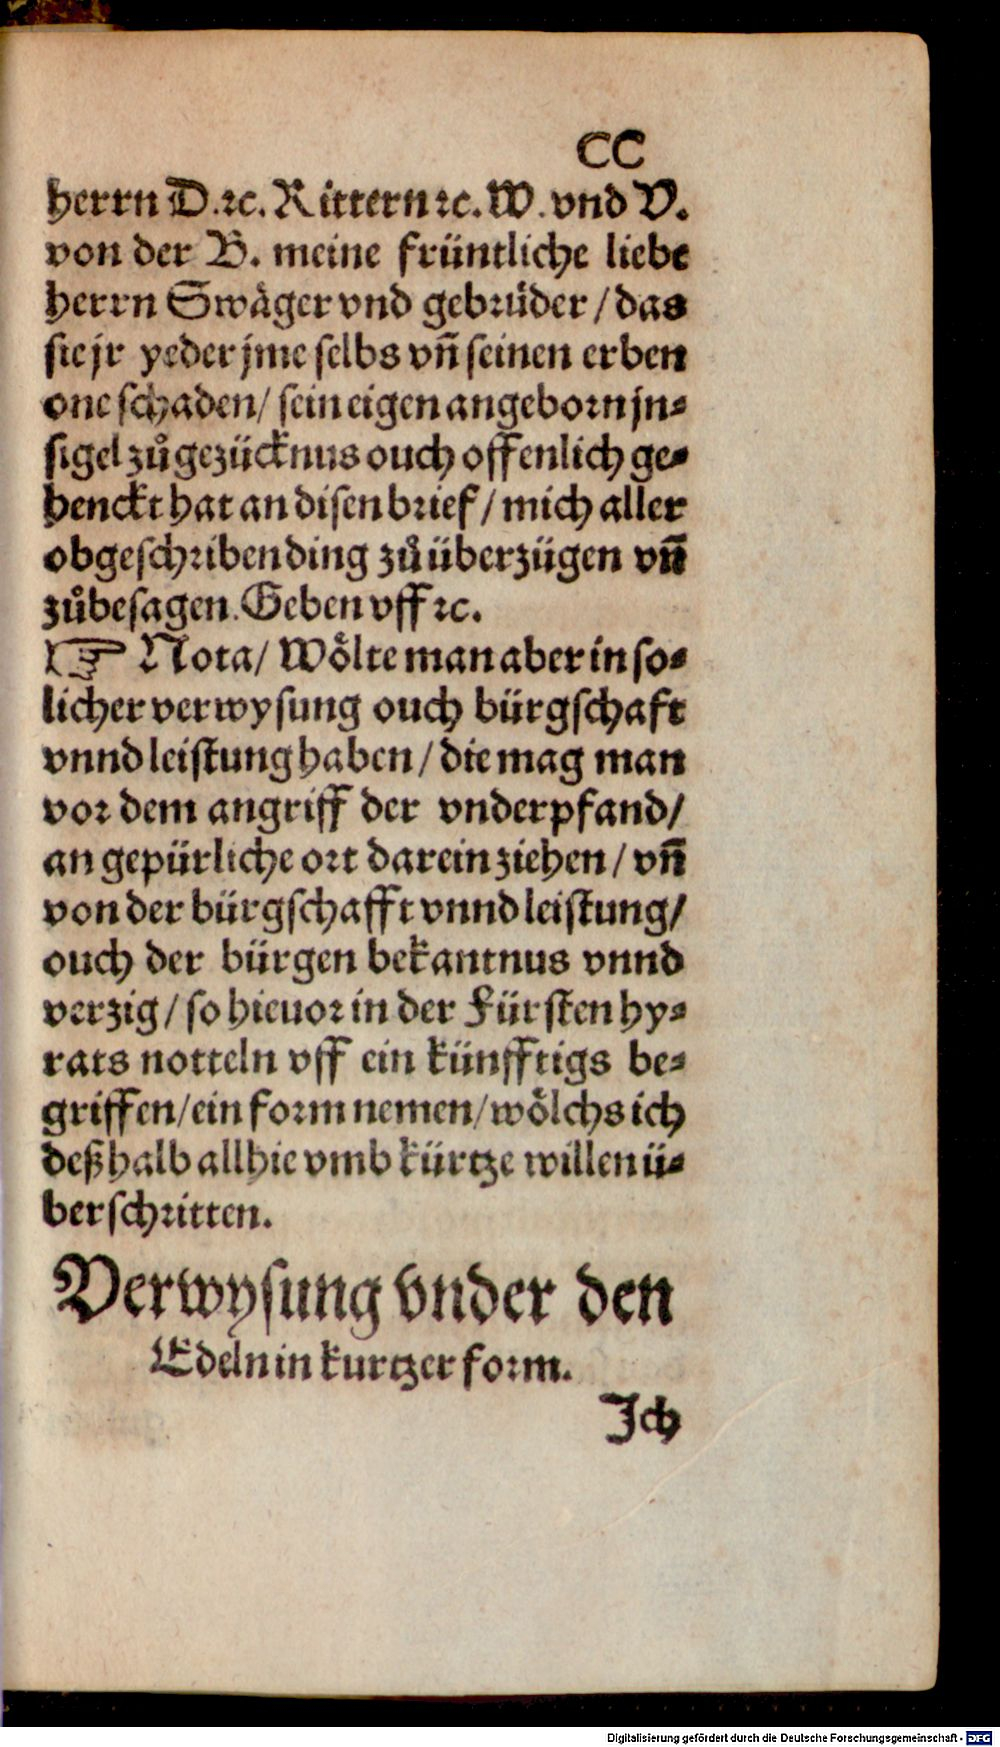 CC
herrn D.ꝛc. Rittern ꝛc. W. vnd V.
von der B. meine früntliche liebe
herrn Swäger vnd gebrüder / das
sie jr yeder jme selbs vn̄ seinen erben
one schaden / sein eigen angeborn jn⸗
sigel zů gezücknus ouch offenlich ge⸗
henckt hat an disen brief / mich aller
obgeschriben ding zů überzügen vn̄
zůbesagen. Geben vff ꝛc.
☞ Nota / Wölte man aber in so⸗
licher verwysung ouch bürgschaft
vnnd leistung haben / die mag man
vor dem angriff der vnderpfand /
an gepürliche ort darein ziehen / vn̄
von der bürgschafft vnnd leistung /
ouch der bürgen bekantnus vnnd
verzig / so hieuor in der Fürsten hy⸗
rats notteln vff ein künfftigs be⸗
griffen / ein form nemen / wölchs ich
deßhalb allhie vmb kürtze willen ü⸗
berschritten.
Verwysung vnder den
Edeln in kurtzer form.
Ich
Digitalisierung gefördert durch die Deutsche Forschungsgemeinschaft - DFG